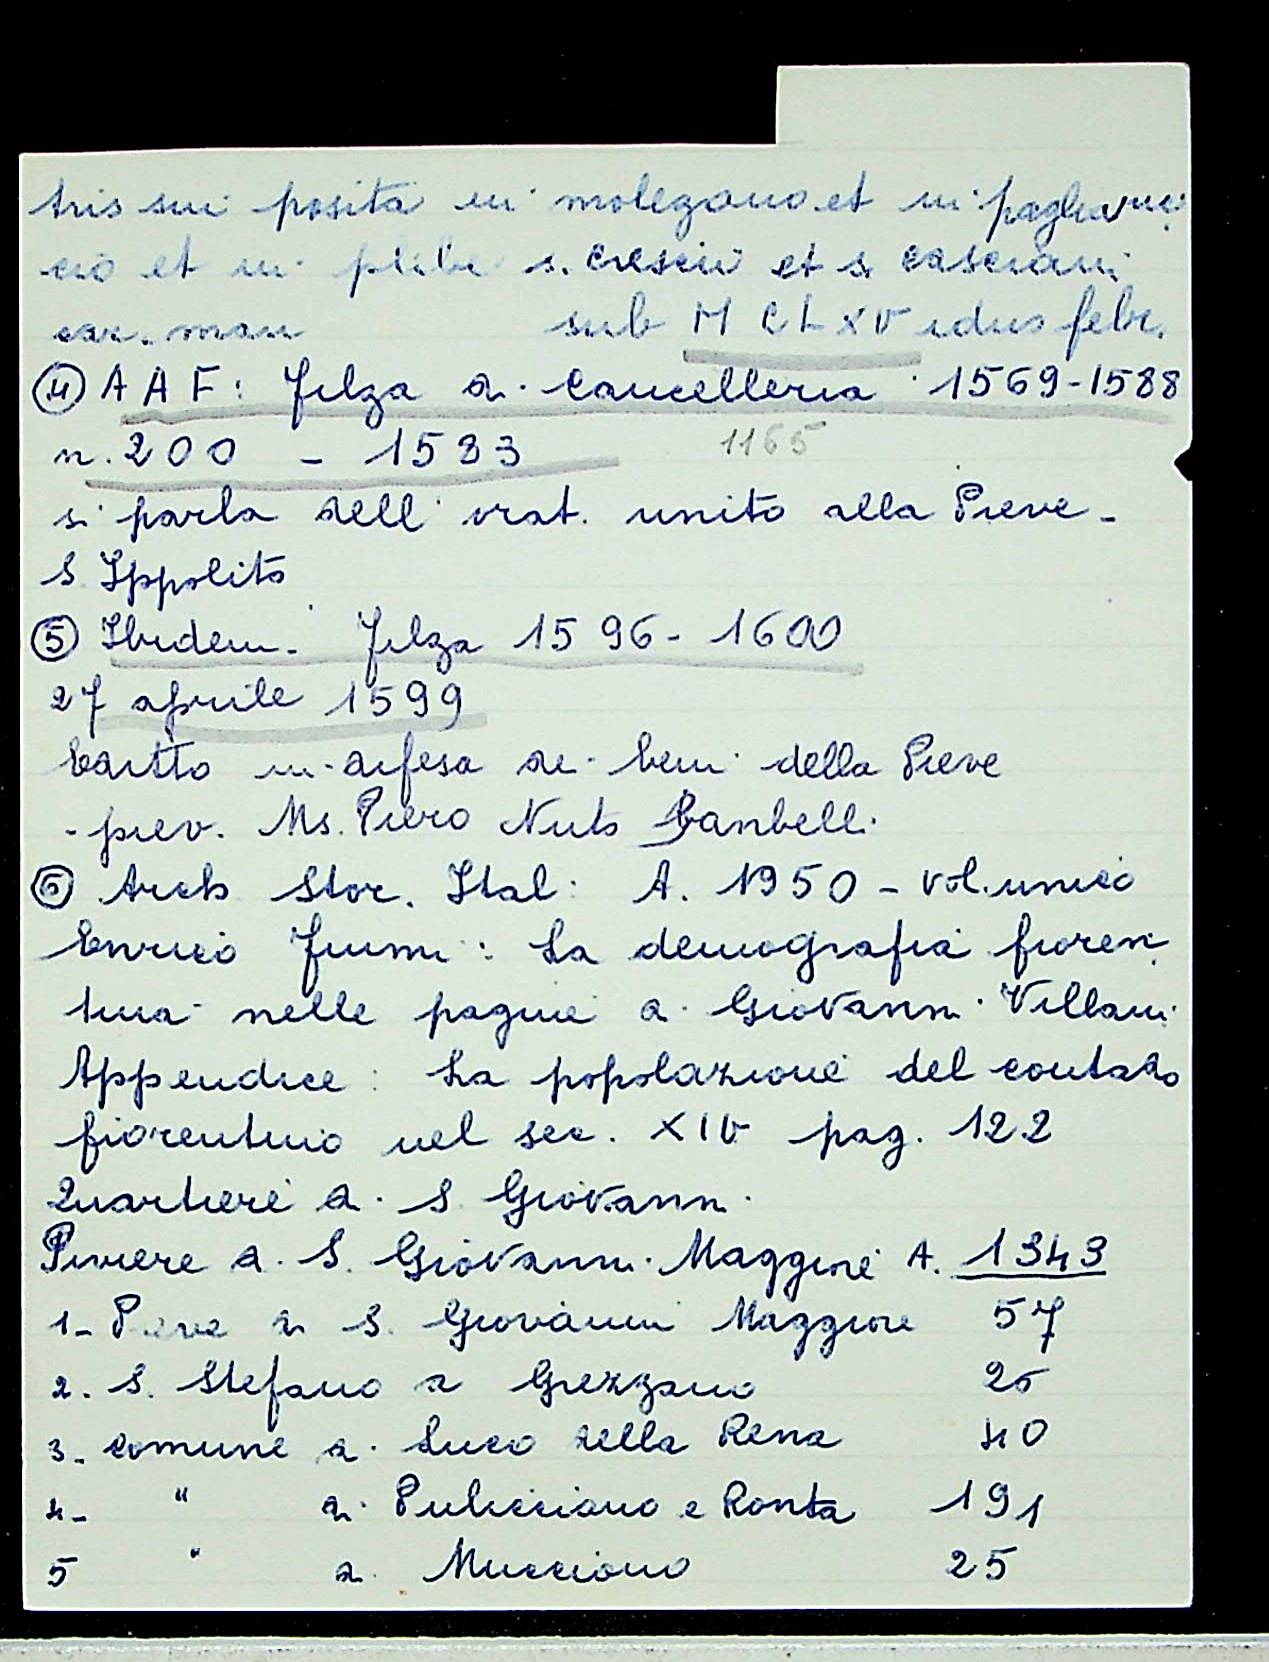 tris sui posita in molezano et in pagliaric
cio et in plebe s. Cresciī et s. casciani
car. man sub MCLXV idus febr.
④ AAF: Filza di Cancelleria 1569-1588
n. 200 - 1583 1165
si parla dell' orat. unito alla Pieve -
S. Ippolito
⑤ Ibidem. Filza 1596-1600
27 aprile 1599
Editto in difesa dei beni della Pieve
- piev. Ms. Piero Nuts
⑥ Arch Stor. Ital: A. 1950 - vol. unico
Enrico Fiumi: La demografia fioren
tina nelle pagine di Giovanni Villani
Appendice: La popolazione del contado
fiorentino nel sec. XIV pag. 122
Quartiere di S. Giovanni
Piviere di S. Giovanni Maggiore A. 1343
1- Pieve di S. Giovanni Maggiore 57
2. S. Stefano a Grezzano 25
3. comune di Luco della Rena 40
4- " di Pulicciano e Ronta 191
5 " di Mucciano 25